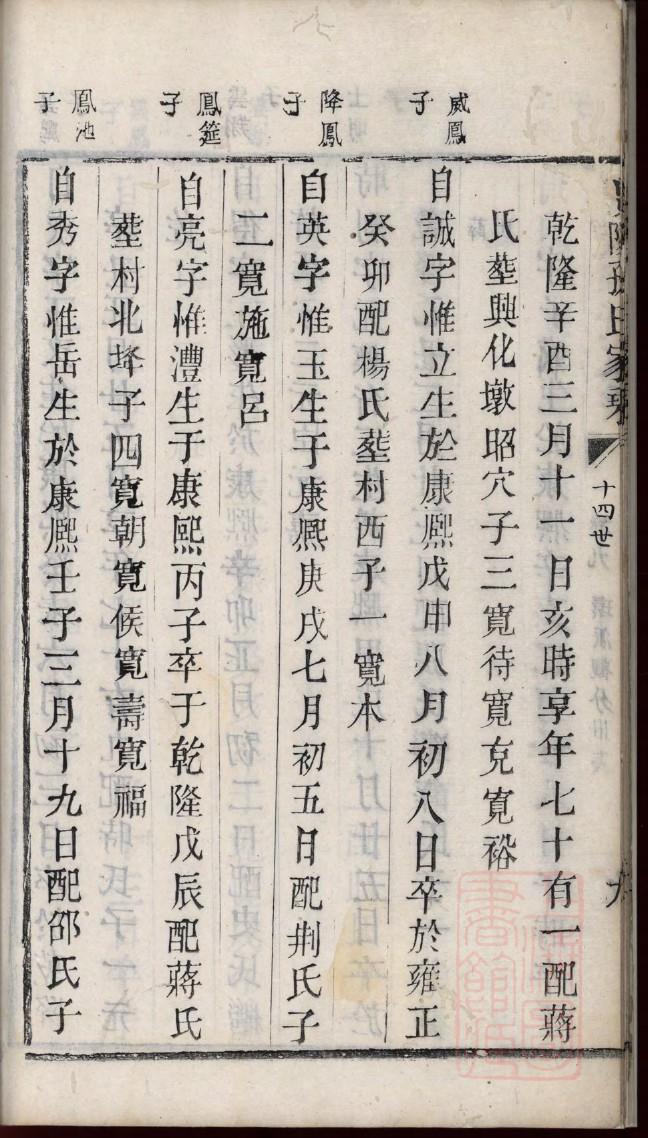 十四世
九
乾隆辛酉三月十一日亥時享年七十有一配蔣
氏塟興化墩昭穴子三寬待寬克寬裕
威鳳子
自誠字惟立生於康熈戊申八月初八日卒於雍正
癸卯配楊氏塟村西子一寬本
降鳳子
自英字惟玉生于康熈庚戌七月初五日配荆氏子
二寬施寬呂
鳳筵子
自亮字惟灃生于康熙丙子卒于乾隆戊辰配蔣氏
塟村北垶子四寬朝寬候寬壽寬福
鳳池子
自秀字惟岳生於康熈壬子三月十九日配邵氏子